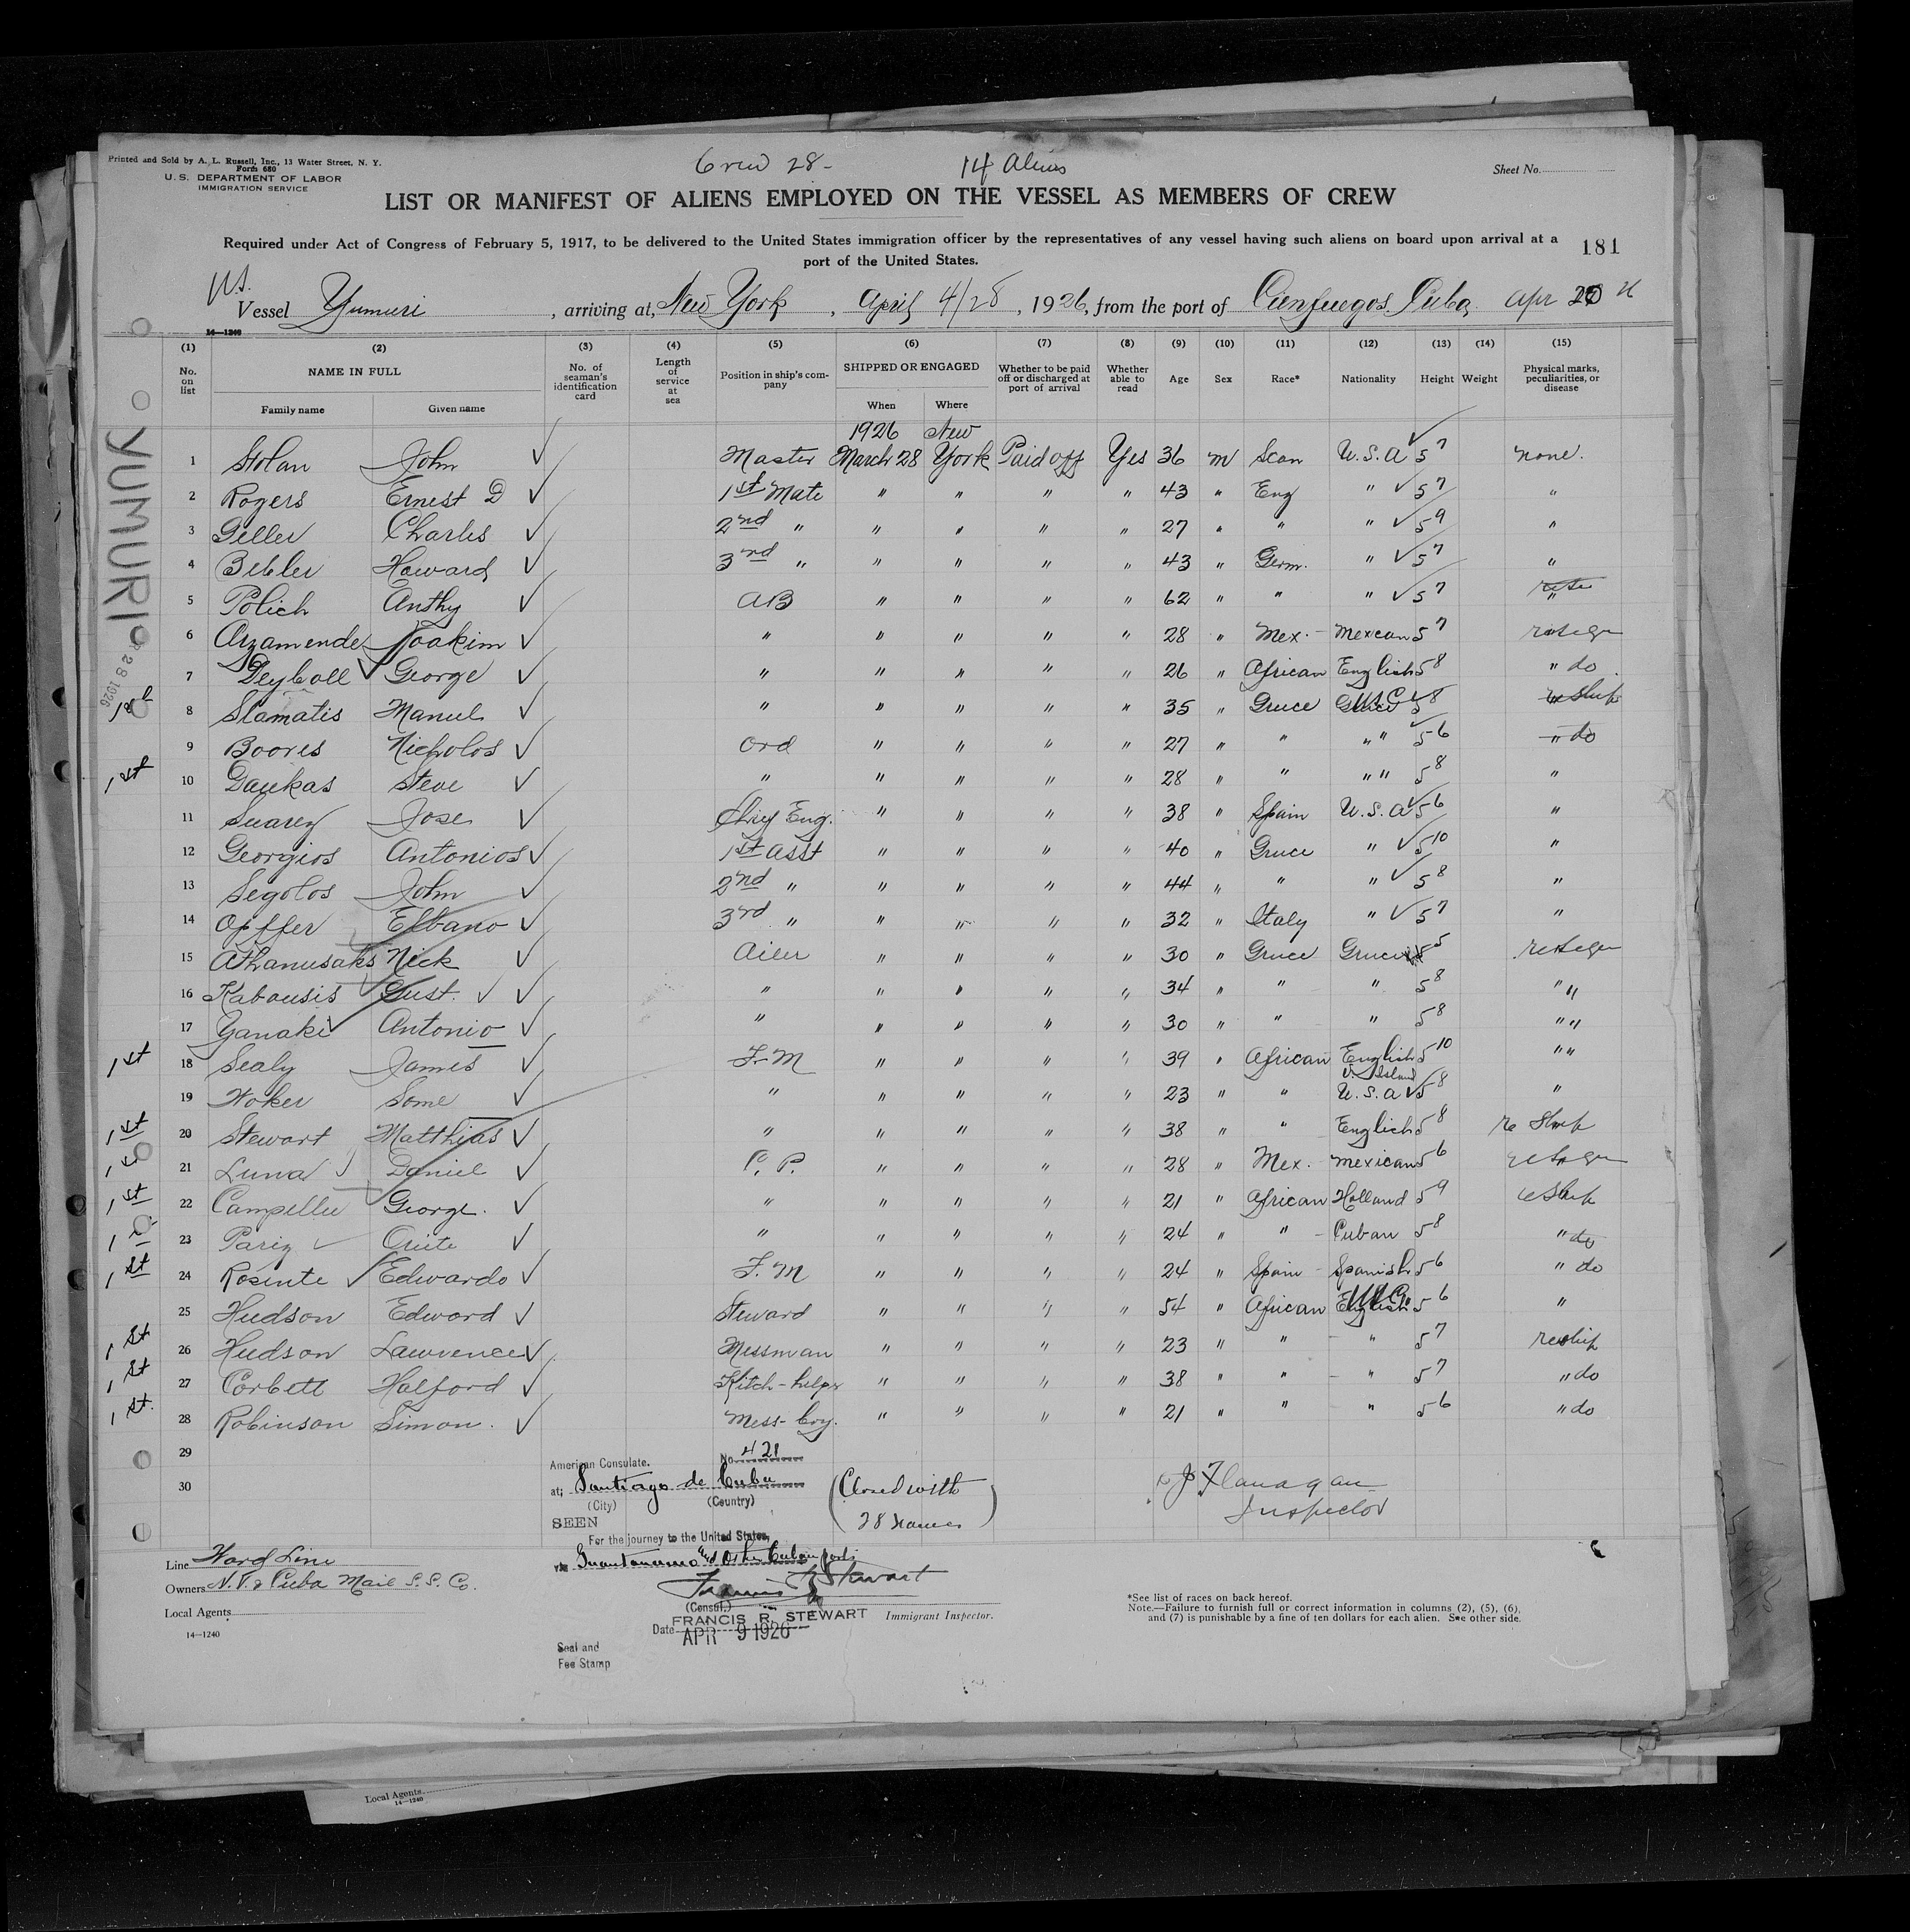 Printed and Sold by A. L. Russell, Inc., 13 Water Street, N. Y.
Form 680
U. S. DEPARTMENT OF LABOR
IMMIGRATION SERVICE
Crew 28-
14 Aliens
Sheet No.
LIST OR MANIFEST OF ALIENS EMPLOYED ON THE VESSEL AS MEMBERS OF CREW
Required under Act of Congress of February 5, 1917, to be delivered to the United States immigration officer by the representatives of any vessel having such aliens on board upon arrival at a
port of the United States.
181
Vessel Yumuri, arriving at, New York, April 4/28, 1926, from the port of Cienfuegos. Cuba, Apr
14—1240
(1) (2) (3) (4) (5) (6) (7) (8) (9) (10) (11) (12) (13) (14) (15)
No. on list NAME IN FULL No. of seaman's identification card Length of service at sea Position in ship's company SHIPPED OR ENGAGED Whether to be paid off or discharged at port of arrival Whether able to read Age Sex Race* Nationality Height Weight Physical marks, peculiarities, or disease
Family name Given name When Where
1926 New
1 Stolan John Master March 28 York Paid off Yes 36 m Scan U.S.A 5 7 none.
2 Rogers Ernest D 1st Mate " " " " 43 " Eng " 5 7 "
3 Geller Charles 2nd " " " " " 27 " " " 5 9 "
4 Bebler Howard 3nd " " " " " 43 " Germ. " 5 7 "
5 Polich Anthy AB " " " " 62 " " " 5 7
6 Arzamende Joakim " " " " " 28 " Mex. - Mexican 5 7
7 Deyball George " " " " " 26 " African English 5 8 " do
8 Stamatis Manuel " " " " " 35 " Greece 5 8 reship
9 Boores Nicholos Ord " " " " 27 " " " " 5 6 " do
10 Daukas Steve " " " " " 28 " " " " 5 8 "
11 Suarez Jose Chief Eng. " " " " 38 " Spain U.S.A 5 6 "
12 Georgios Antonios 1st Asst " " " " 40 " Greece " 5 10 "
13 Segolos John 2nd " " " " " 44 " " " 5 8 "
14 Opffer Elbano 3rd " " " " " 32 " Italy " 5 7 "
15 Athanusaks Nick Oiler " " " " 30 " Greece Greece 5 5
16 Kabousis Gust. " " " " " 34 " " " 5 8 " "
17 Yanaki Antonio " " " " " 30 " " " 5 8 " "
1st 18 Sealy James F.M " " " " 39 " African English 5 10 " "
V. Island
19 Woker Some " " " " " 23 " " U.S.A 5 8 "
1st 20 Stewart Matthias " " " " " 38 " " English 5 8 re Ship
1st 21 Luna Daniel C.P. " " " " 28 " Mex. Mexican 5 6
1st 22 Campellu George. " " " " " 21 " African Holland 5 9 reship
23 Pariz " " " " " 24 " " - Cuban 5 8 " do
1st 24 Rosente Edwardo F.M " " " " 24 " Spain - Spanish 5 6 " do
25 Hudson Edward Steward " " " " 54 " African English 5 6 "
1st 26 Hudson Lawrence Messman " " " " 23 " " - " 5 7 reship
1st 27 Corbett Halford Kitch-helper " " " " 38 " " - " 5 7 " do
1st. 28 Robinson Simon. Mess-boy. " " " " 21 " " " 5 6 " do
29
30
YUMURI
28 1926
American Consulate. No. 421
at; Santiago de Cuba
(City) (Country)
SEEN
For the journey to the United States,
via Guantanamo and other Cuban ports
(Closed with
28 names)
J Flanagan
Inspector
Francis R Stewart
(Consul.)
FRANCIS R. STEWART Immigrant Inspector.
Date APR 9 1926
Seal and
Fee Stamp
Line Ward Line
Owners N.Y. & Cuba Mail S.S. Co.
Local Agents
14—1240
*See list of races on back hereof.
Note.—Failure to furnish full or correct information in columns (2), (5), (6),
and (7) is punishable by a fine of ten dollars for each alien. See other side.
Local Agents
14—1240